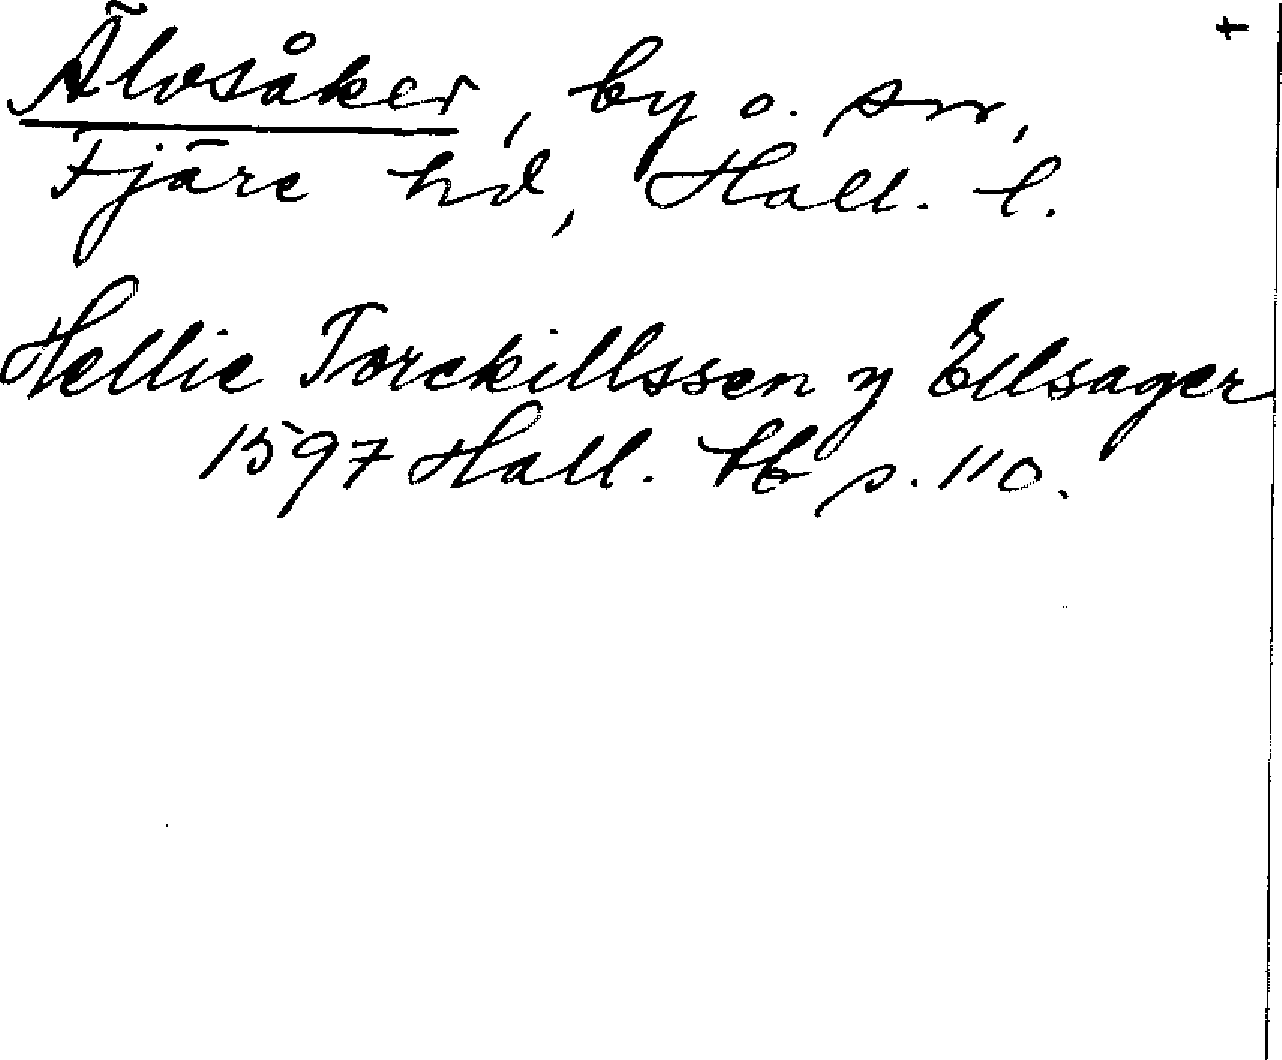 Älvsåker, by o. sn,
Fjäre hd, Hall. l.
Hellie Torckillssen y Ellsager
1597 Hall. tb s. 110.